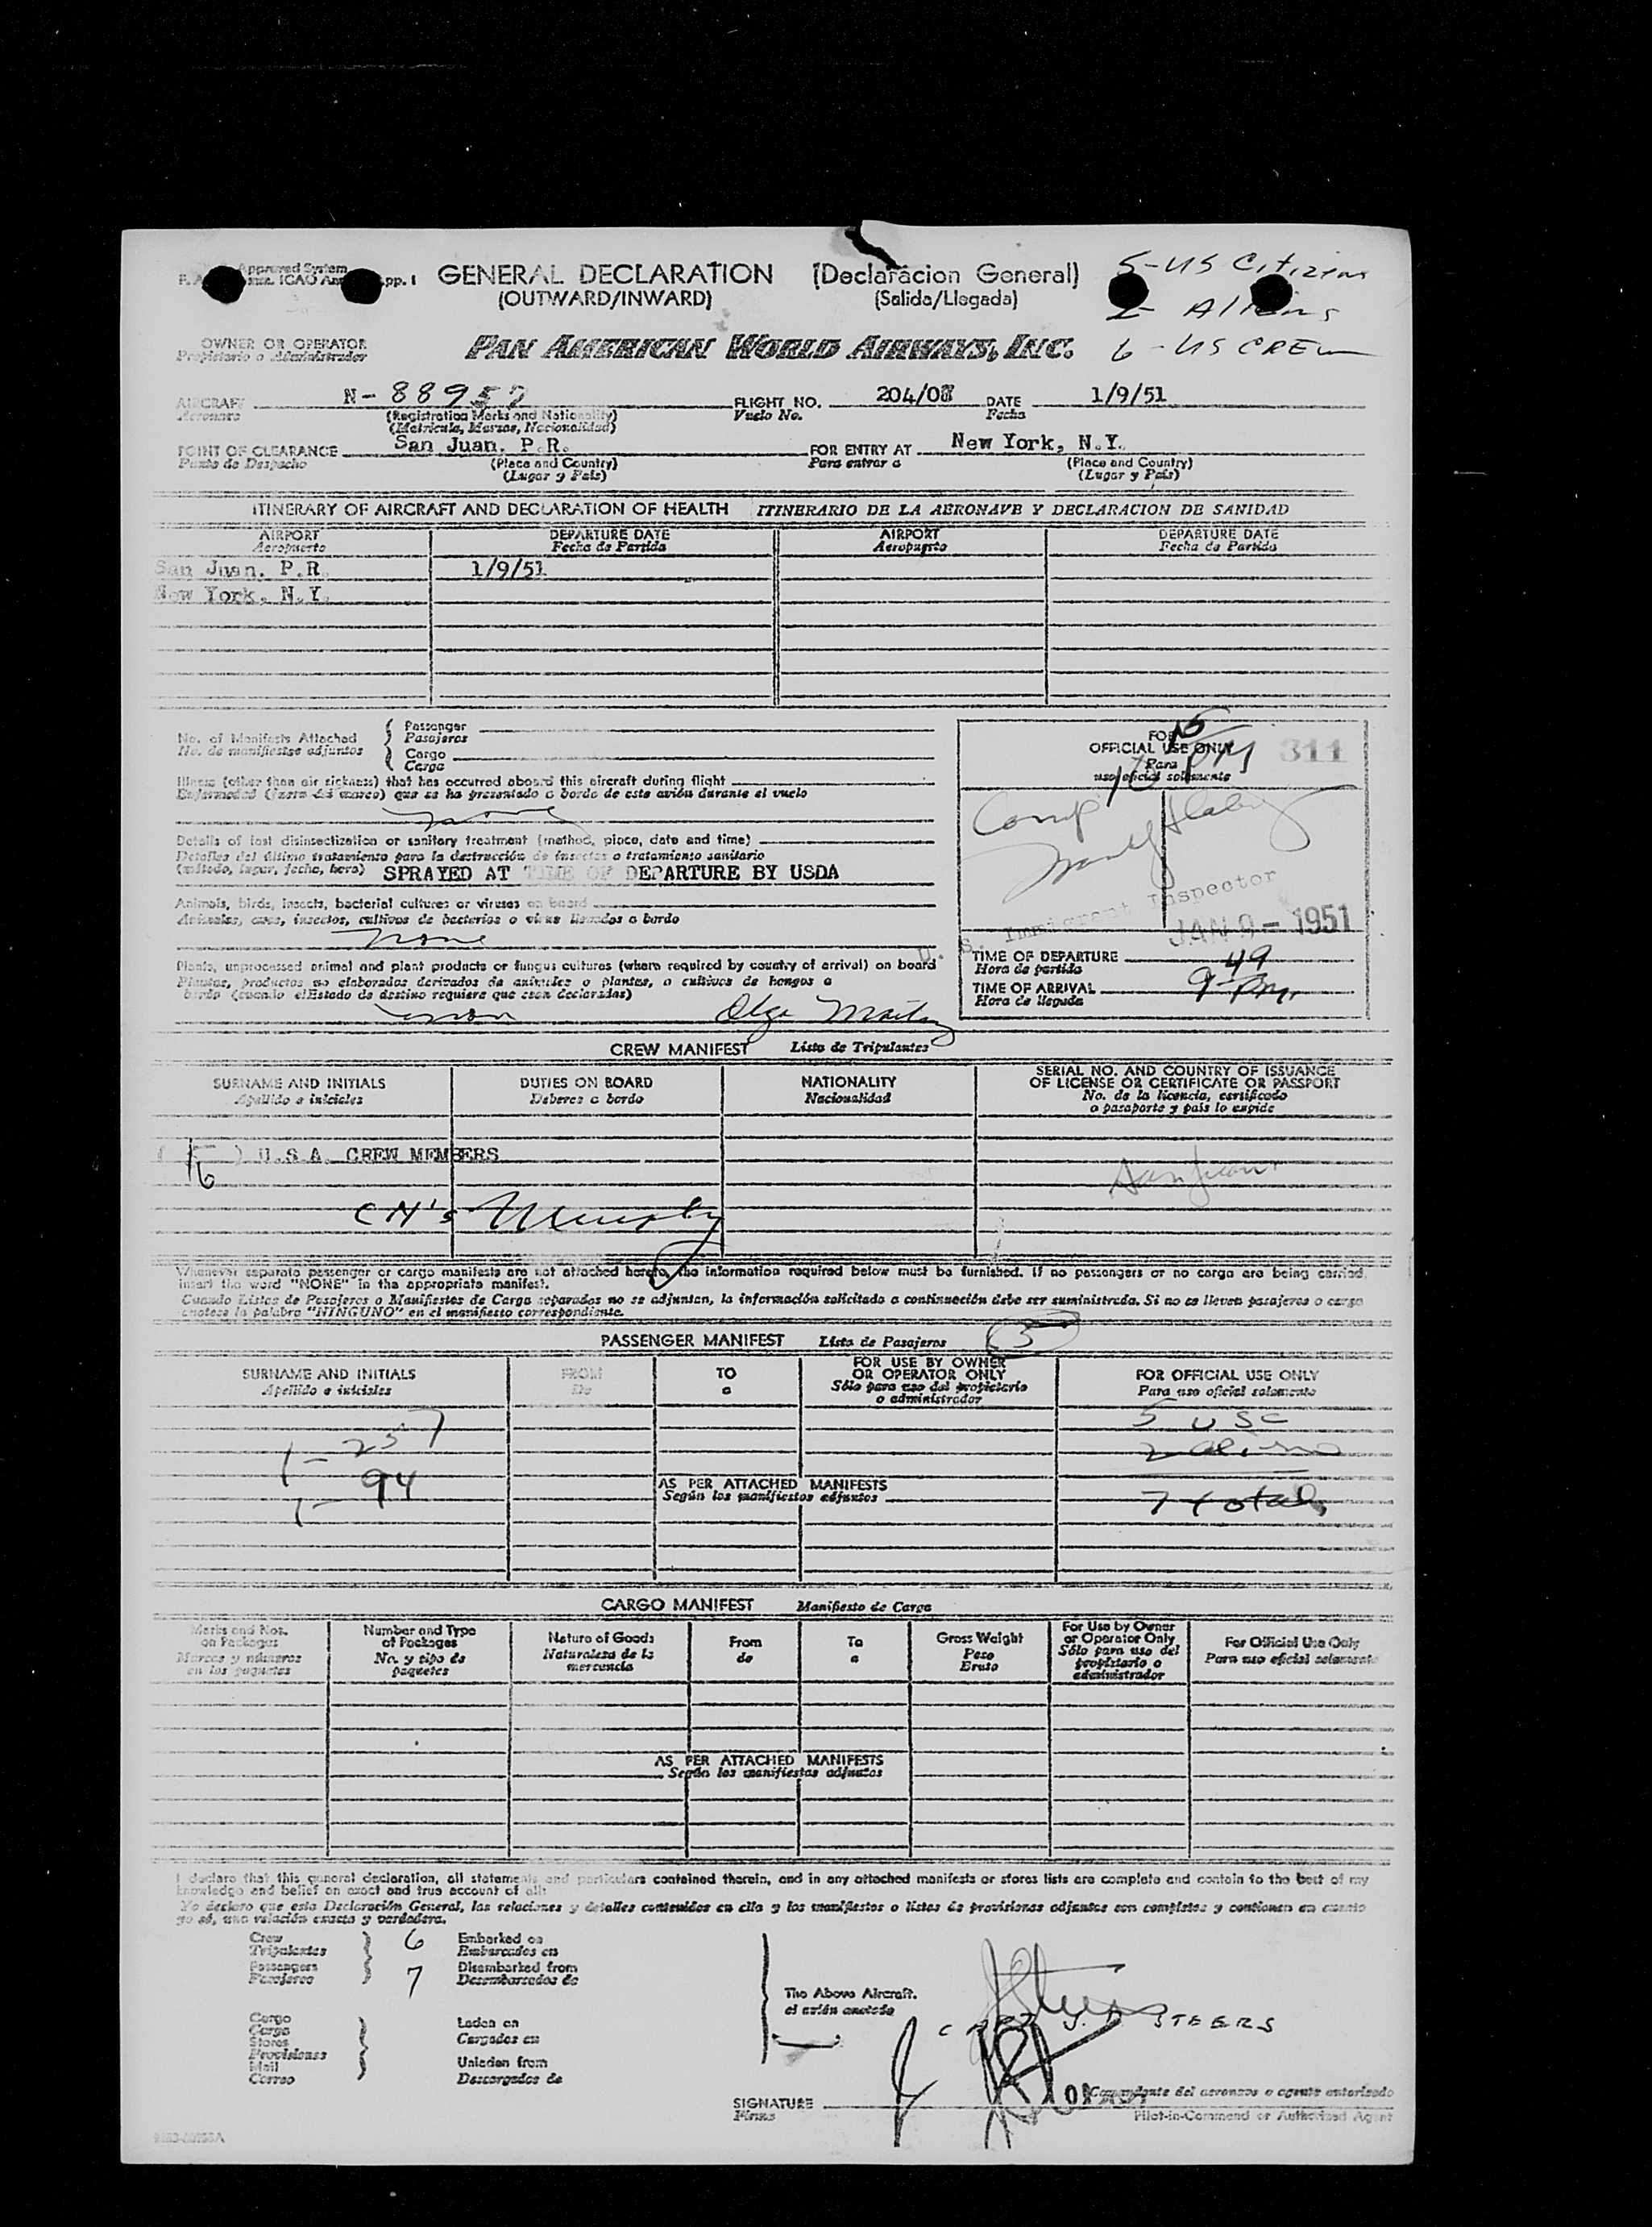 Approved System
GENERAL DECLARATION (Declaracion General)
(OUTWARD/INWARD) (Salida/Llegada)
5-US Citizens
2- Aliens
6-US CREW
OWNER OR OPERATOR
Propietario o Administrador
PAN AMERICAN WORLD AIRWAYS, INC.
AIRCRAFT N-88952 FLIGHT NO. 204/08 DATE 1/9/51
Aeronave (Registration Marks and Nationality) Vuelo No. Fecha
(Matricula, Marcas, Nacionalidad)
POINT OF CLEARANCE San Juan, P.R. FOR ENTRY AT New York, N.Y.
Punto de Despacho (Place and Country) Para entrar a (Place and Country)
(Lugar y País) (Lugar y País)
ITINERARY OF AIRCRAFT AND DECLARATION OF HEALTH ITINERARIO DE LA AERONAVE Y DECLARACION DE SANIDAD
AIRPORT DEPARTURE DATE AIRPORT DEPARTURE DATE
Aeropuerto Fecha de Partida Aeropuerto Fecha de Partida
San Juan, P.R. 1/9/51
New York, N.Y.
No. of Manifests Attached Passenger
No. de manifiestos adjuntos Pasajeros
Cargo
Carga
FOR OFFICIAL USE ONLY 311
Para
uso oficial solamente
Illness (other than air sickness) that has occurred aboard this aircraft during flight
Enfermedad (fuera del mareo) que se ha presentado a bordo de este avión durante el vuelo
none
Details of last disinsectization or sanitary treatment (method, place, date and time)
Detalles del último tratamiento para la destrucción de insectos o tratamiento sanitario
(método, lugar, fecha, hora) SPRAYED AT TIME OF DEPARTURE BY USDA
Animals, birds, insects, bacterial cultures or viruses on board
Animales, aves, insectos, cultivos de bacterias o virus llevados a bordo
none
U. S. Immigrant Inspector
JAN 9 - 1951
Plants, unprocessed animal and plant products or fungus cultures (where required by country of arrival) on board
Plantas, productos no elaborados derivados de animales o plantas, o cultivos de hongos a
bordo (cuando el Estado de destino requiere que sean declaradas)
none Olga
TIME OF DEPARTURE
Hora de partida
TIME OF ARRIVAL 9 49 PM.
Hora de llegada
CREW MANIFEST Lista de Tripulantes
SURNAME AND INITIALS DUTIES ON BOARD NATIONALITY SERIAL NO. AND COUNTRY OF ISSUANCE
OF LICENSE OR CERTIFICATE OR PASSPORT
Apellido e iniciales Deberes a bordo Nacionalidad No. de la licencia, certificado
o pasaporte y país lo expide
( 6 ) U.S.A. CREW MEMBERS
San Juan
CH's Murphy
Whenever separate passenger or cargo manifests are not attached hereto, the information required below must be furnished. If no passengers or no cargo are being carried,
insert the word "NONE" in the appropriate manifest.
Cuando Listas de Pasajeros o Manifiestos de Carga separados no se adjuntan, la información solicitada a continuación debe ser suministrada. Si no se llevan pasajeros o carga
anotese la palabra "NINGUNO" en el manifiesto correspondiente.
PASSENGER MANIFEST Lista de Pasajeros 5
SURNAME AND INITIALS FROM TO FOR USE BY OWNER
OR OPERATOR ONLY FOR OFFICIAL USE ONLY
Apellido e iniciales De a Sólo para uso del propietario
o administrador Para uso oficial solamente
5 USC
1-257 2 aliens
1-94 AS PER ATTACHED MANIFESTS 7 total
Según los manifiestos adjuntos
CARGO MANIFEST Manifiesto de Carga
Marks and Nos. on Packages Number and Type of Packages Nature of Goods From To Gross Weight For Use by Owner or Operator Only For Official Use Only
Marcas y números en los paquetes No. y tipo de paquetes Naturaleza de la mercancía de a Peso Bruto Sólo para uso del propietario o administrador Para uso oficial solamente
AS PER ATTACHED MANIFESTS
Según los manifiestos adjuntos
I declare that this general declaration, all statements and particulars contained therein, and in any attached manifests or stores lists are complete and contain to the best of my
knowledge and belief an exact and true account of all:
Yo declaro que esta Declaración General, las relaciones y detalles contenidos en ella y los manifiestos o listas de provisiones adjuntas son completos y contienen en cuanto
yo sé, una relación exacta y verdadera.
Crew 6 Embarked on
Tripulantes Embarcados en
Passengers 7 Disembarked from
Pasajeros Desembarcados de
The Above Aircraft.
el avión anotado
Cargo Laden on
Carga Cargados en
Stores
Provisiones Unladen from
Mail Descargados de
Correo
CAPT J. STEERS
SIGNATURE Comandante del aeronave o agente autorizado
Firma Pilot-in-Command or Authorized Agent